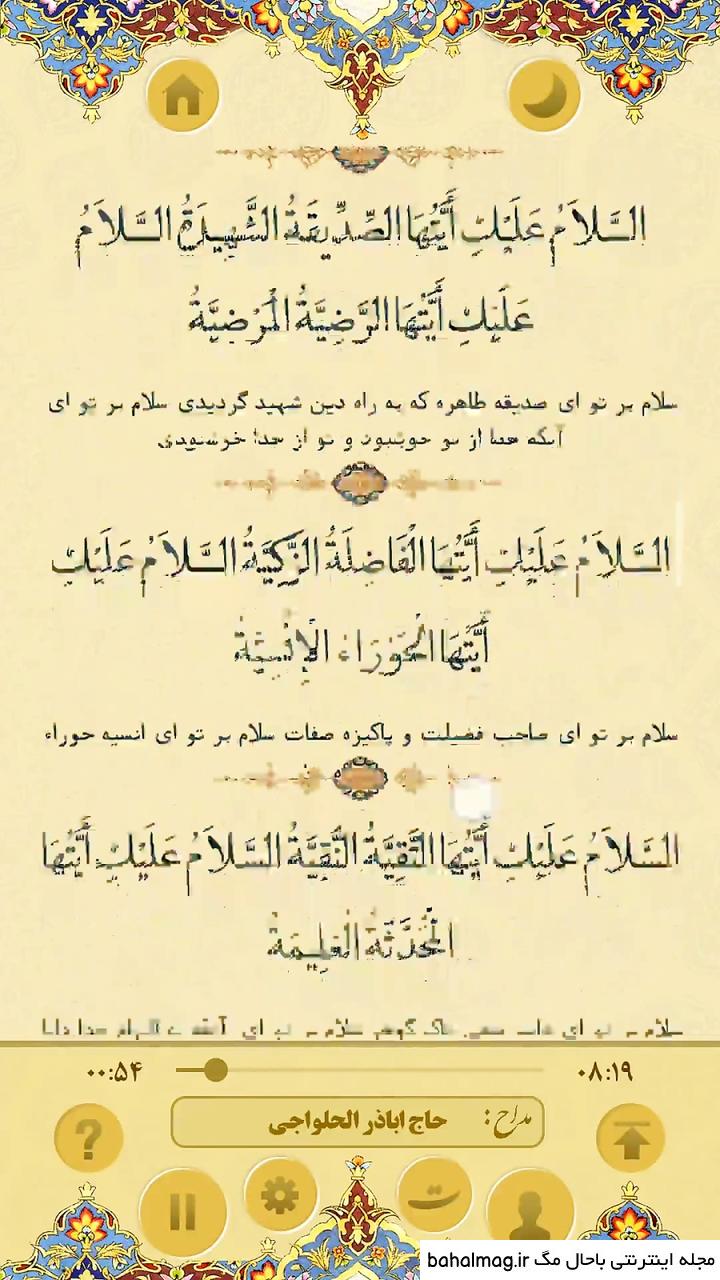 السَّلَامُ عَلَيْكِ أَيَّتُهَا الصِّدِّيقَةُ الشَّهِيدَةُ السَّلَامُ
عَلَيْكِ أَيَّتُهَا الرَّضِيَّةُ الْمَرْضِيَّةُ
سلام بر تو ای صدیقه طاهره که به راه دین شهید گردیدی سلام بر تو ای
آنکه خدا از تو خوشنود و تو از خدا خوشنودی
السَّلَامُ عَلَيْكِ أَيَّتُهَا الْفَاضِلَةُ الزَّكِيَّةُ السَّلَامُ عَلَيْكِ
أَيَّتُهَا الْحَوْرَاءُ الْإِنْسِيَّةُ
سلام بر تو ای صاحب فضیلت و پاکیزه صفات سلام بر تو ای انسیه حوراء
السَّلَامُ عَلَيْكِ أَيَّتُهَا التَّقِيَّةُ النَّقِيَّةُ السَّلَامُ عَلَيْكِ أَيَّتُهَا
الْمُحَدَّثَةُ الْعَلِيمَةُ
سلام بر تو ای سلام بر تو ای
۰۰:۵۴ ۰۸:۱۹
مداح: حاج اباذر الحلواجی
?
ت
مجله اینترنتی باحال مگ bahalmag.ir